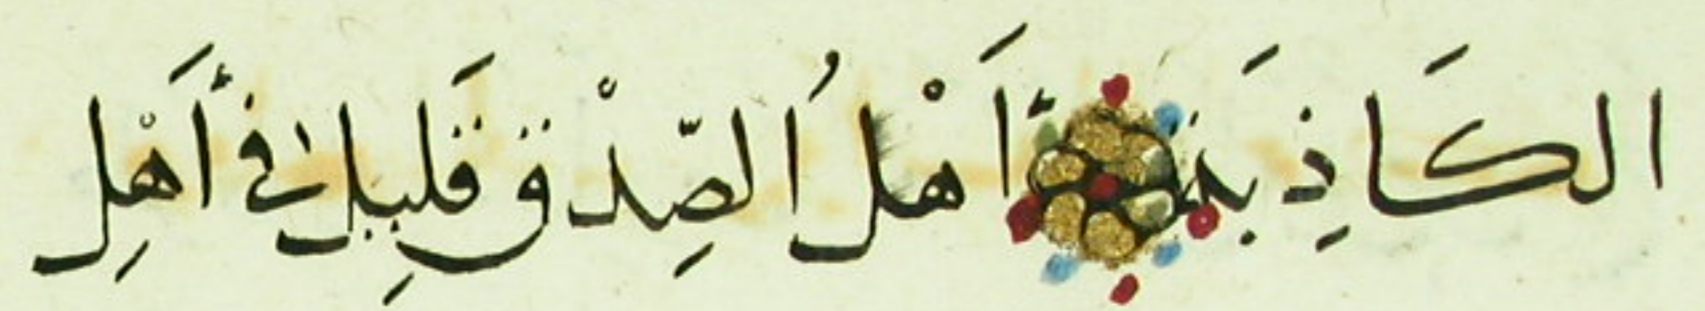 الكَاذِبَة أَهْلُ الصِّدْقِ قَلِيلٌ فِي أَهْلِ